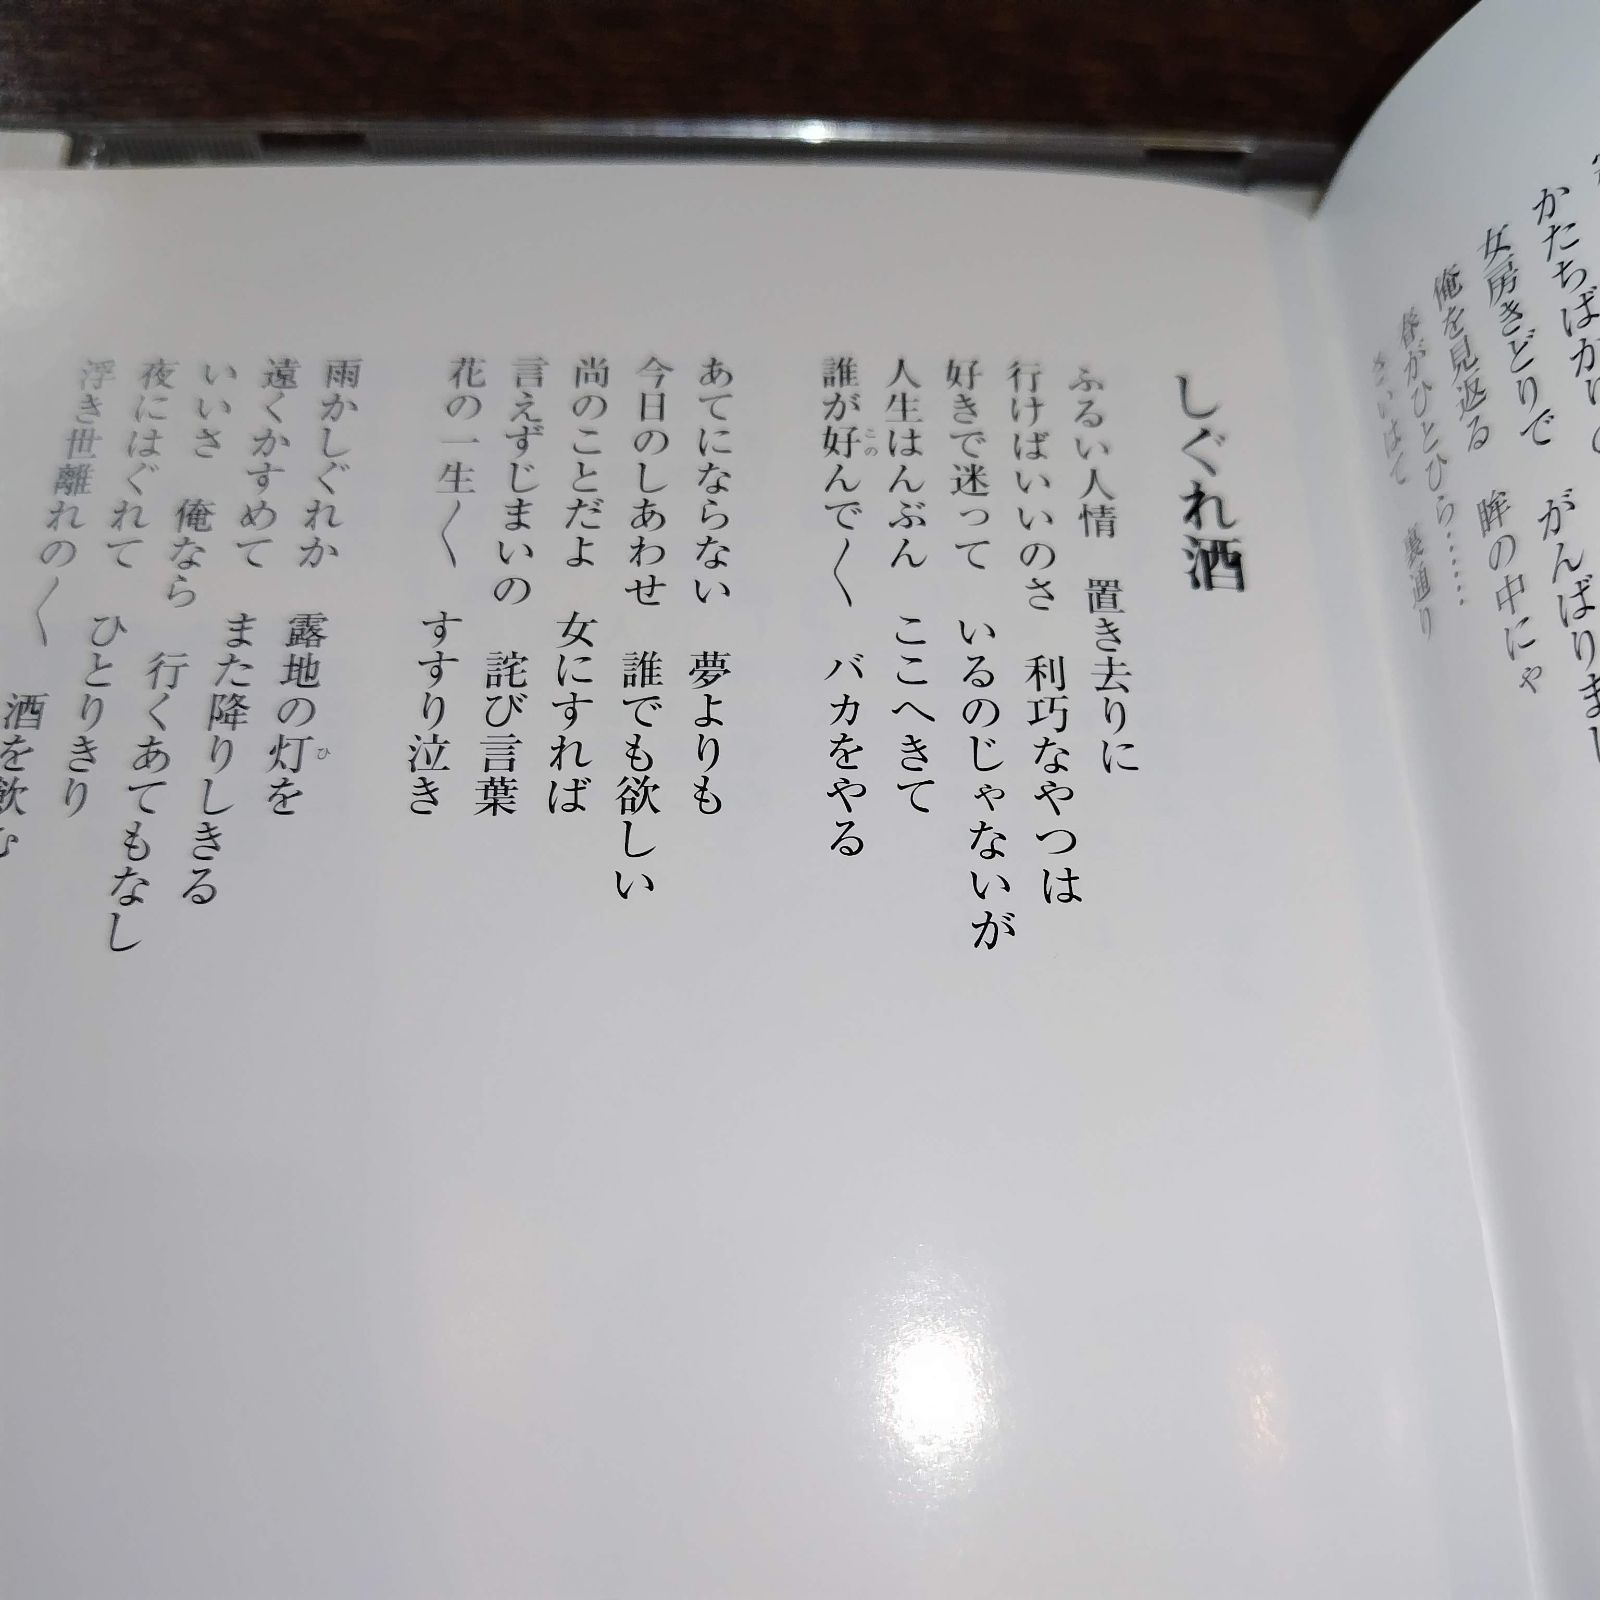 かたちばかりの　がんばりまし
女房きどりで
俺を見返る　眸の中にゃ
春がひとひら……
さいはて　裏通り
しぐれ酒
ふるい人情　置き去りに
行けばいいのさ　利巧なやつは
好きで迷って　いるのじゃないが
人生はんぶん　ここへきて
誰が好んで〱　バカをやる
この
あてにならない　夢よりも
今日のしあわせ　誰でも欲しい
尚のことだよ　女にすれば
言えずじまいの　詫び言葉
花の一生〱　すすり泣き
雨かしぐれか　露地の灯を
ひ
遠くかすめて　また降りしきる
いいさ　俺なら　行くあてもなし
夜にはぐれて　ひとりきり
浮き世離れの〱　酒を飲む